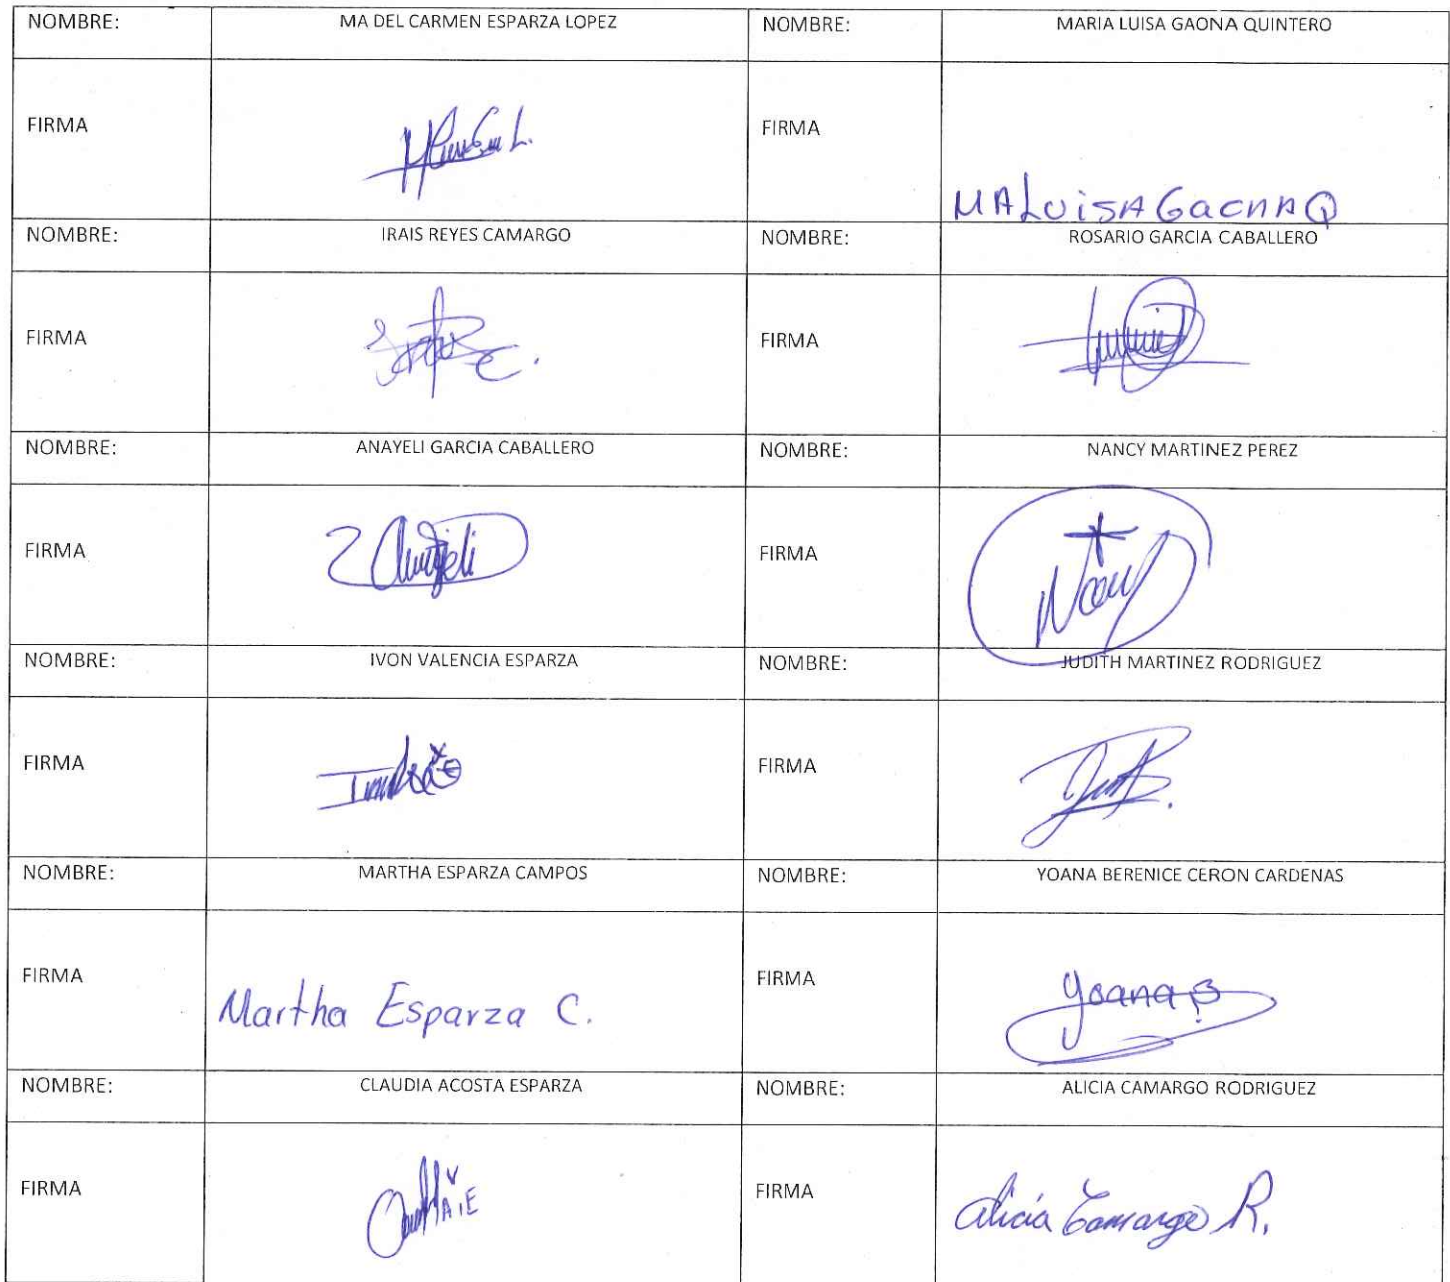 NOMBRE: MA DEL CARMEN ESPARZA LOPEZ NOMBRE: MARIA LUISA GAONA QUINTERO
FIRMA FIRMA
MA LUISA GAONA Q
NOMBRE: IRAIS REYES CAMARGO NOMBRE: ROSARIO GARCIA CABALLERO
FIRMA FIRMA
NOMBRE: ANAYELI GARCIA CABALLERO NOMBRE: NANCY MARTINEZ PEREZ
FIRMA Anayeli FIRMA Nancy
NOMBRE: IVON VALENCIA ESPARZA NOMBRE: JUDITH MARTINEZ RODRIGUEZ
FIRMA FIRMA
NOMBRE: MARTHA ESPARZA CAMPOS NOMBRE: YOANA BERENICE CERON CARDENAS
FIRMA Martha Esparza C. FIRMA yoana B
NOMBRE: CLAUDIA ACOSTA ESPARZA NOMBRE: ALICIA CAMARGO RODRIGUEZ
FIRMA FIRMA Alicia Camargo R.